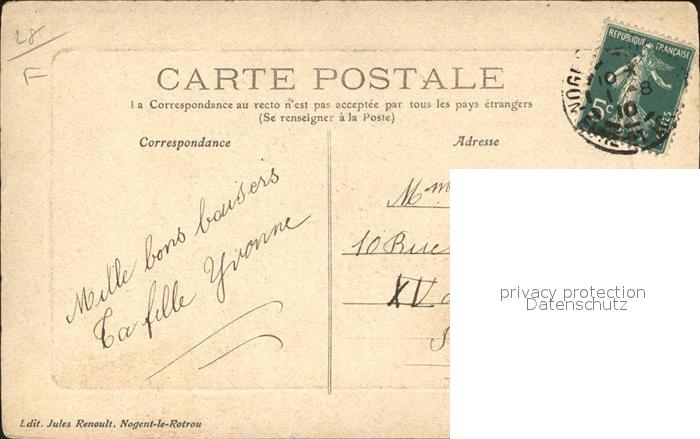 28
F
REPUBLIQUE FRANÇAISE
5c
POSTES
NOGE
10
1 - 8
10
CARTE POSTALE
La Correspondance au recto n'est pas acceptée par tous les pays étrangers
(Se renseigner à la Poste)
Correspondance
Adresse
Mille bons baisers
Ta fille Yvonne
Mme
10 Rue
XV
privacy protection
Datenschutz
Edit. Jules Renoult, Nogent-le-Rotrou